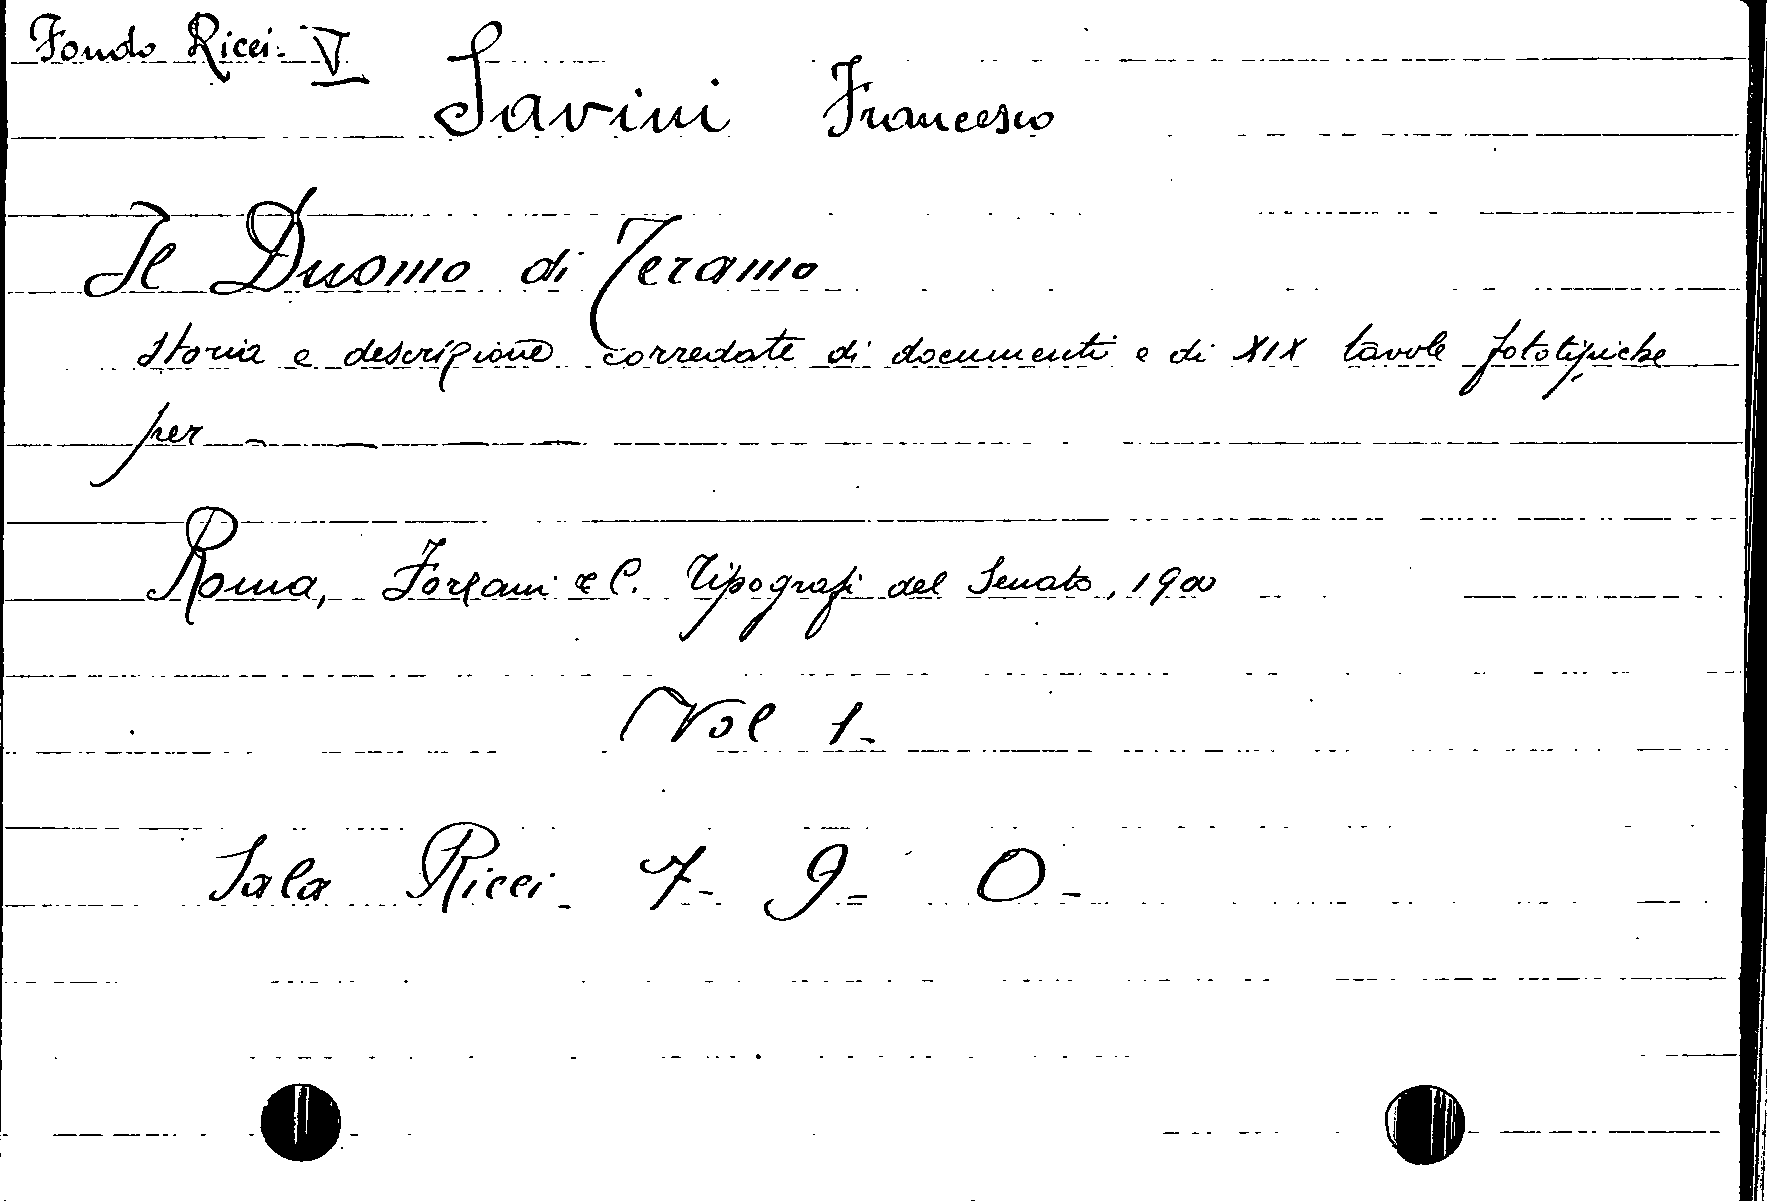 Fondo Ricci - V
Savini Francesco
Il Duomo di Teramo
storia e descrizione corredate di documenti e di XIX tavole fototipiche
per -
Roma, Forzani e C. Tipografi del Senato, 1900
Vol 1 -
Sala Ricci - 7 - 9 = 0 -